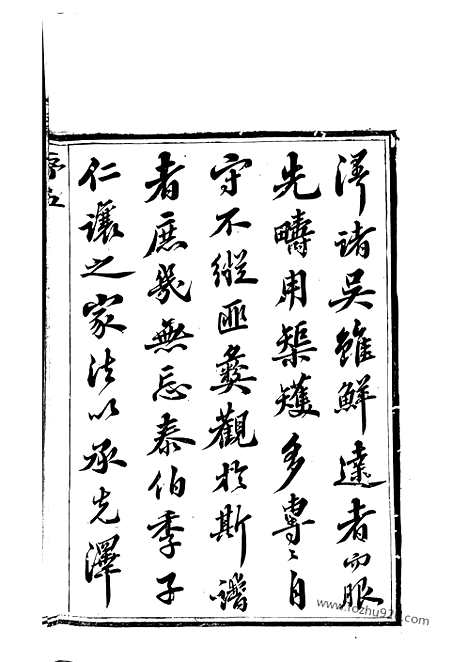 諸吳雖鮮達者而服
先疇用榘矱多專〻自
守不縱匪彝觀於斯譜
者庶幾無忘泰伯季子
仁讓之家法以承先澤
序五